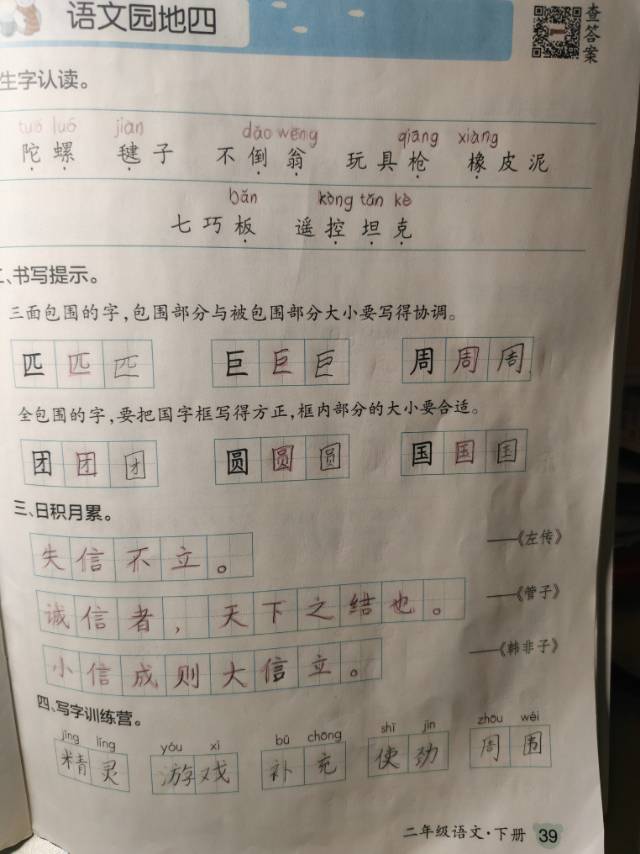 语文园地四
查答案
生字认读。
tuó luó jiàn dǎo wēng qiāng xiàng
陀螺 毽子 不倒翁 玩具枪 橡皮泥
bǎn kòng tǎn kè
七巧板 遥控坦克
二、书写提示。
三面包围的字,包围部分与被包围部分大小要写得协调。
匹匹匹 巨巨巨 周周周
全包围的字,要把国字框写得方正,框内部分的大小要合适。
团团团 圆圆圆 国国国
三、日积月累。
失信不立。 ——《左传》
诚信者,天下之结也。 ——《管子》
小信成则大信立。 ——《韩非子》
四、写字训练营。
jīng líng yóu xì bǔ chōng shǐ jìn zhōu wéi
精灵 游戏 补充 使劲 周围
二年级语文·下册 39